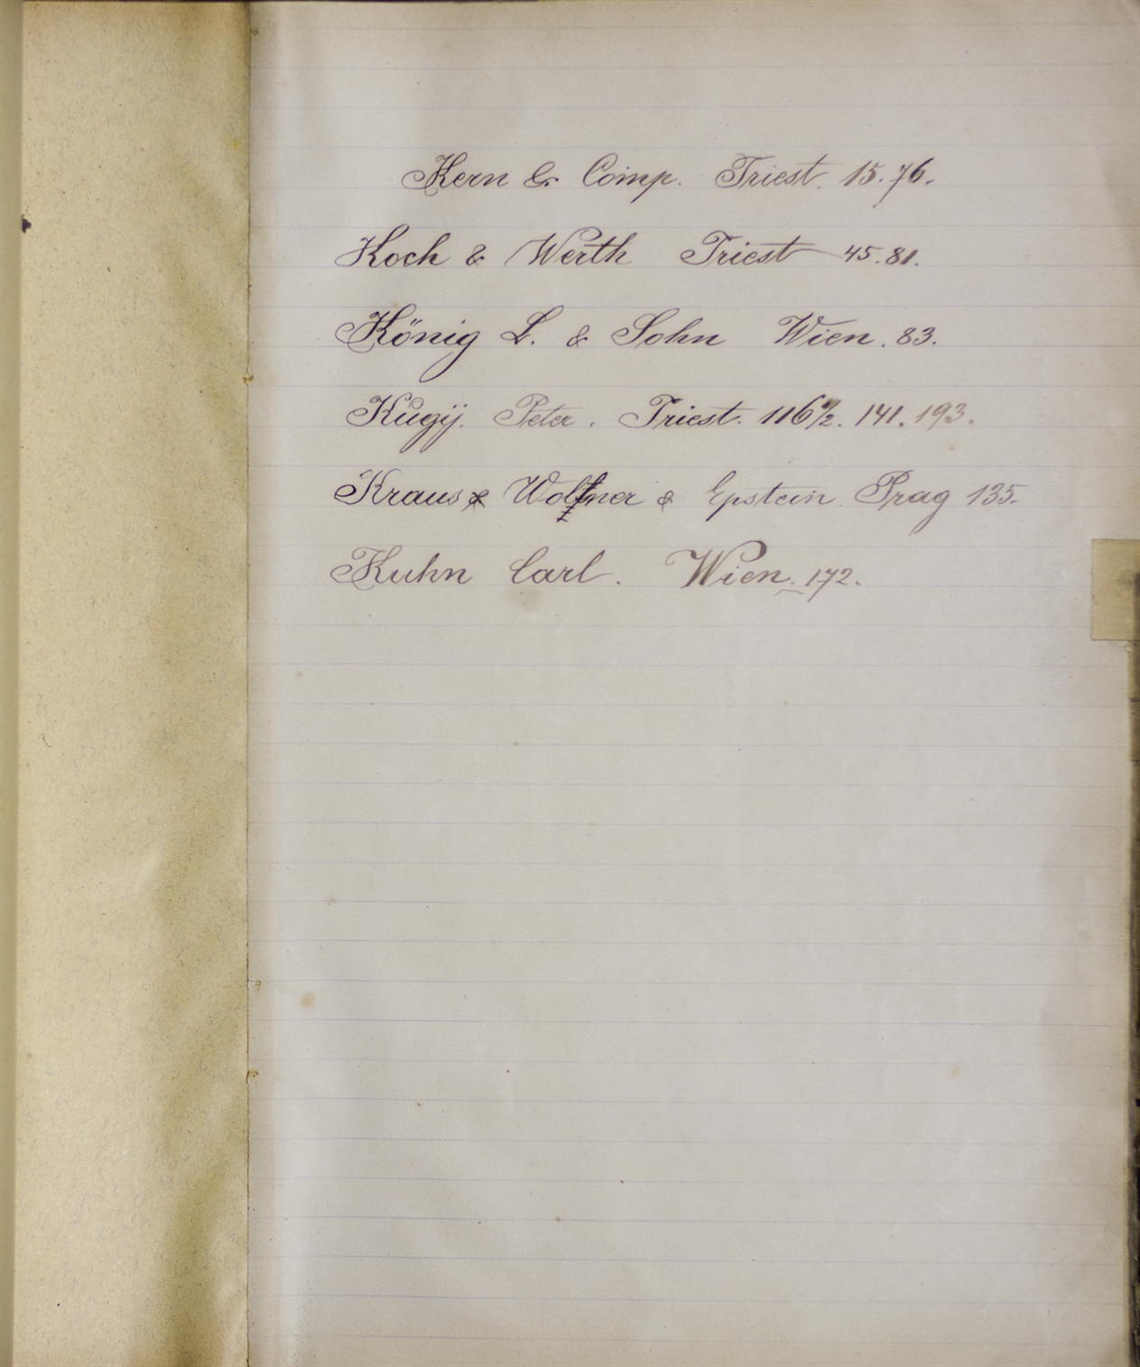 Kern & Comp. Triest. 15. 76.
Koch & Werth Triest 45. 81.
König L. & Sohn Wien. 83.
Kugÿ. Peter. Triest. 116½. 141. 193.
Kraus & Wolfner & Epstein. Prag 135.
Kuhn Carl. Wien. 172.